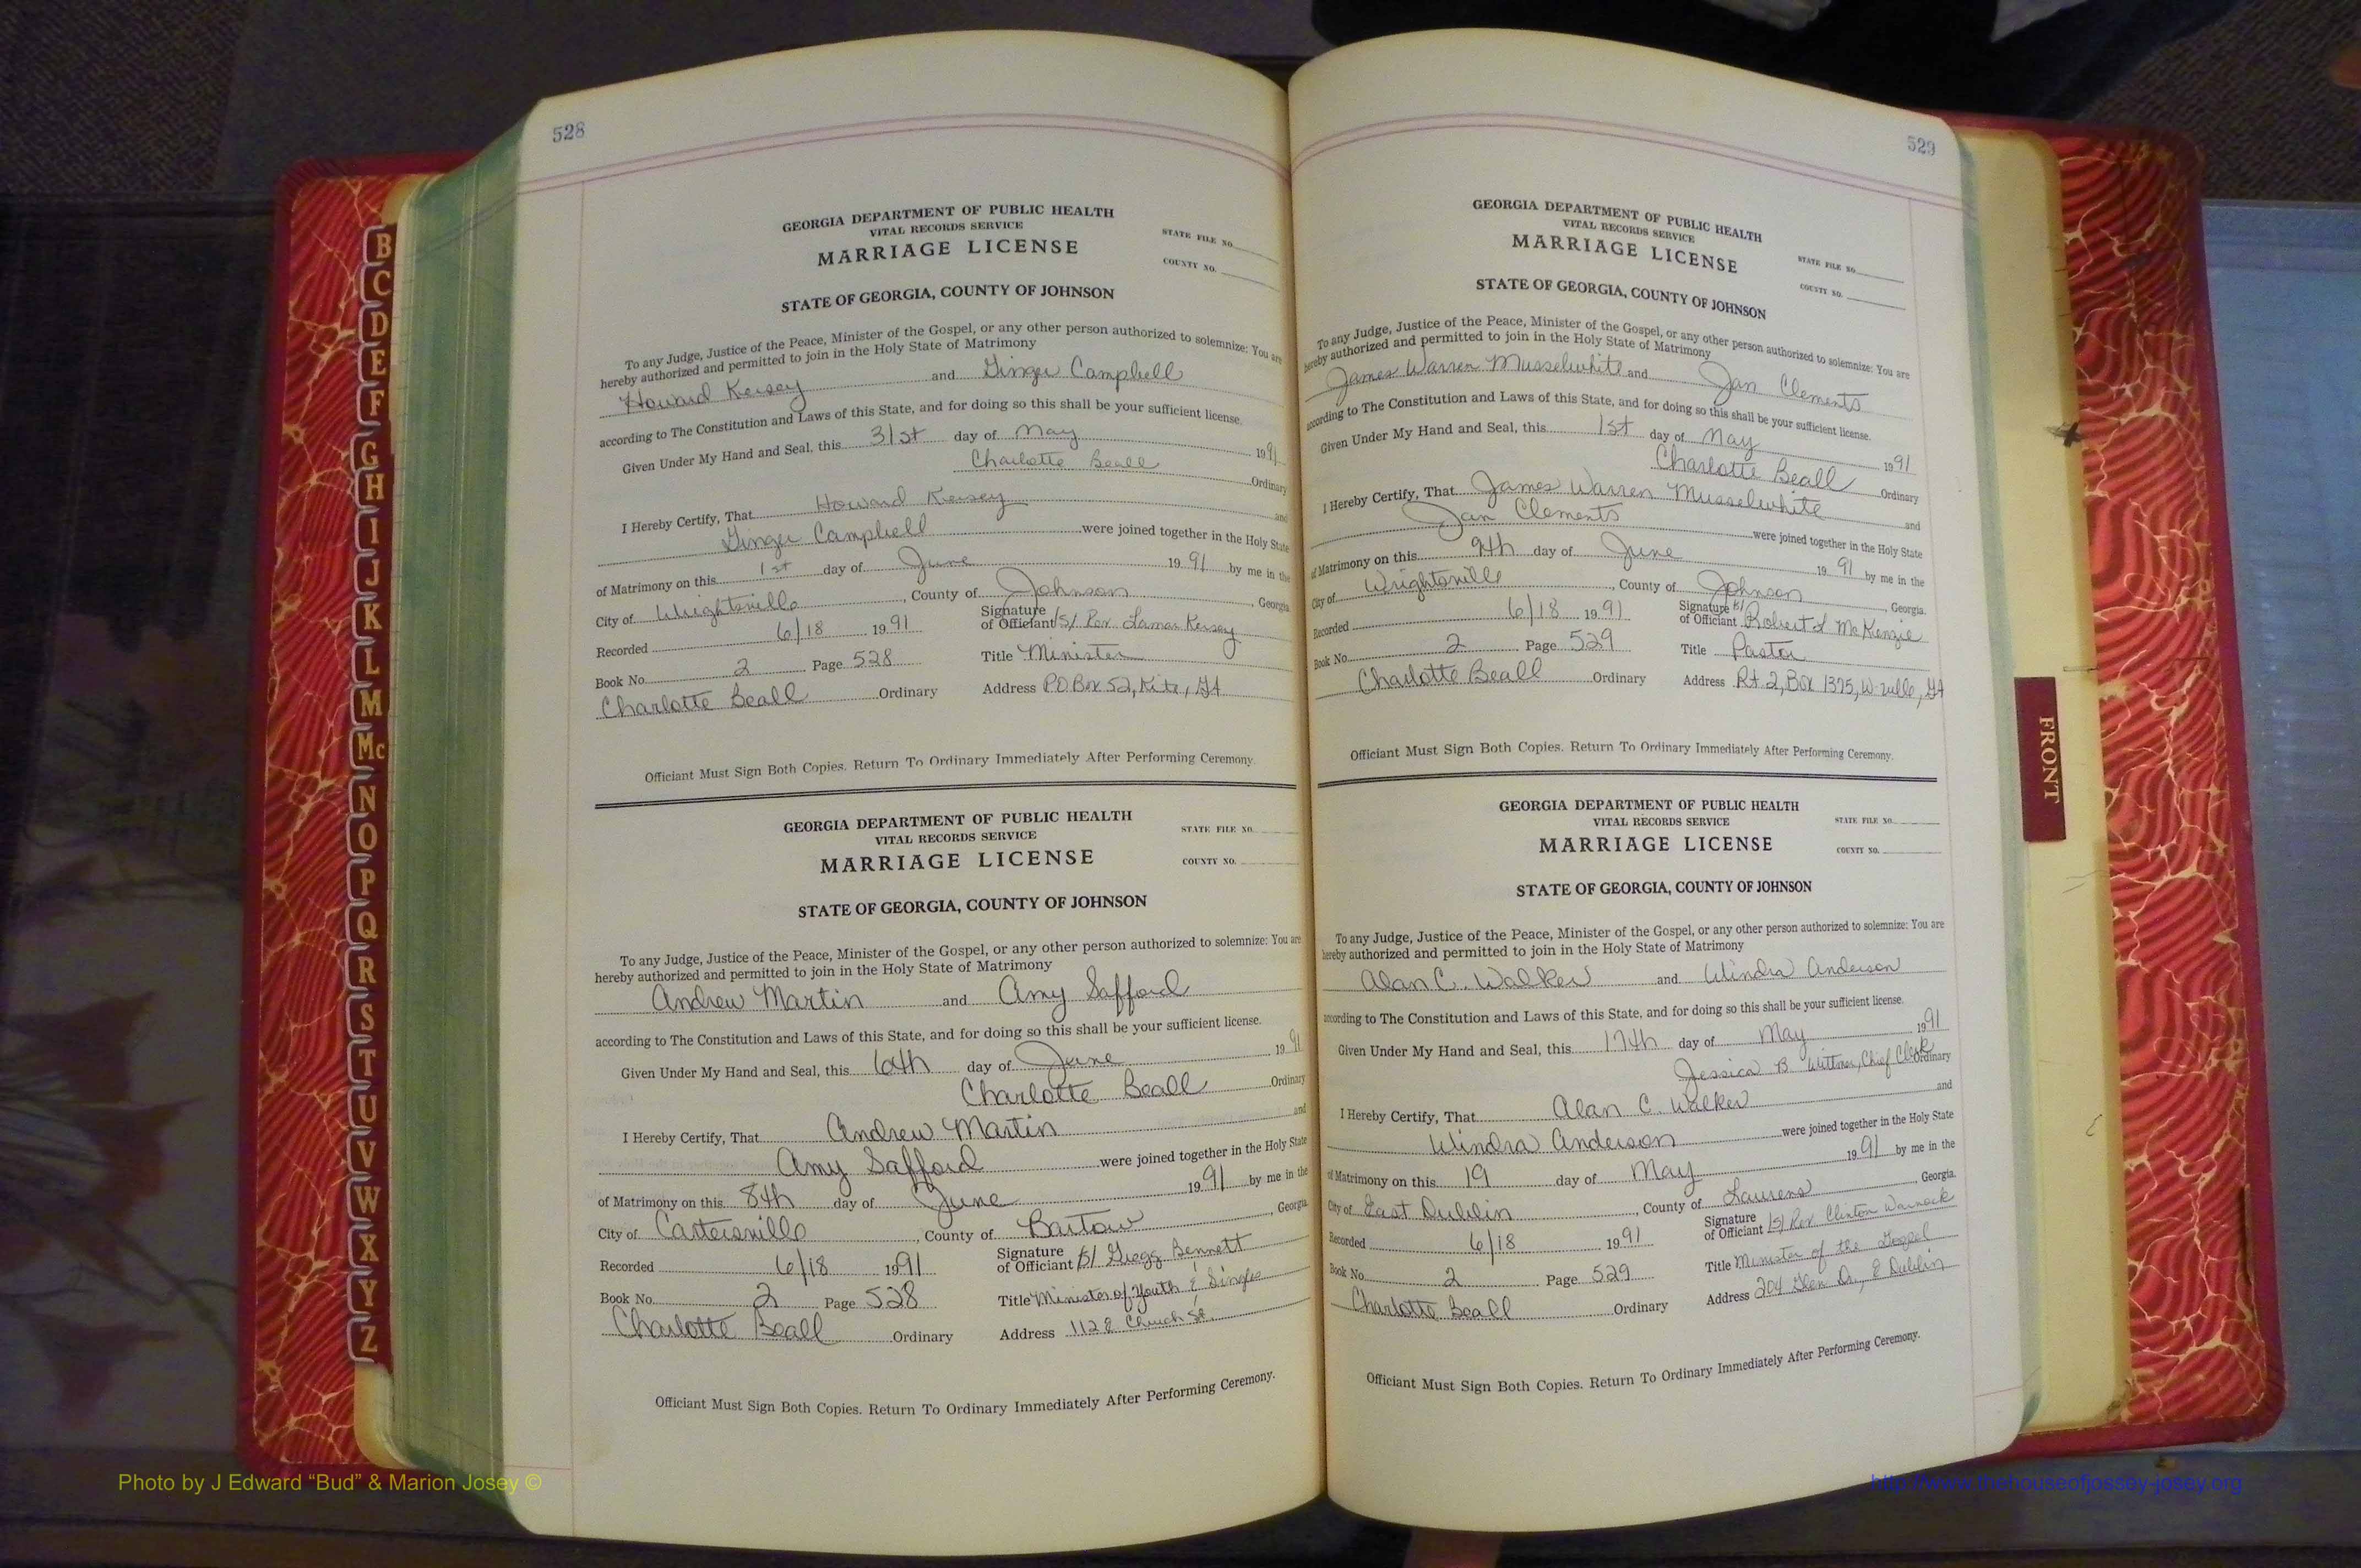 528
GEORGIA DEPARTMENT OF PUBLIC HEALTH
VITAL RECORDS SERVICE
MARRIAGE LICENSE
STATE FILE NO.
COUNTY NO.
STATE OF GEORGIA, COUNTY OF JOHNSON
To any Judge, Justice of the Peace, Minister of the Gospel, or any other person authorized to solemnize: You are
hereby authorized and permitted to join in the Holy State of Matrimony
Howard Kersey and Ginger Campbell
according to The Constitution and Laws of this State, and for doing so this shall be your sufficient license.
Given Under My Hand and Seal, this 31st day of May 1991
Charlotte Beall Ordinary
I Hereby Certify, That Howard Kersey and
Ginger Campbell were joined together in the Holy State
of Matrimony on this 1st day of June 1991 by me in the
City of Wrightsville, County of Johnson, Georgia
Recorded 6/18 1991 Signature of Officiant /s/ Rev Lamar Kersey
Book No. 2 Page 528 Title Minister
Charlotte Beall Ordinary Address PO Box 52, Kite, GA
Officiant Must Sign Both Copies. Return To Ordinary Immediately After Performing Ceremony.
GEORGIA DEPARTMENT OF PUBLIC HEALTH
VITAL RECORDS SERVICE
MARRIAGE LICENSE
STATE FILE NO.
COUNTY NO.
STATE OF GEORGIA, COUNTY OF JOHNSON
To any Judge, Justice of the Peace, Minister of the Gospel, or any other person authorized to solemnize: You are
hereby authorized and permitted to join in the Holy State of Matrimony
Andrew Martin and Amy Safford
according to The Constitution and Laws of this State, and for doing so this shall be your sufficient license.
Given Under My Hand and Seal, this 6th day of June 1991
Charlotte Beall Ordinary
I Hereby Certify, That Andrew Martin and
Amy Safford were joined together in the Holy State
of Matrimony on this 8th day of June 1991 by me in the
City of Cartersville, County of Bartow, Georgia
Recorded 6/18 1991 Signature of Officiant /s/ Gregg Bennett
Book No. 2 Page 528 Title Minister of Youth & Single
Charlotte Beall Ordinary Address 112 E Church St.
Officiant Must Sign Both Copies. Return To Ordinary Immediately After Performing Ceremony.
529
GEORGIA DEPARTMENT OF PUBLIC HEALTH
VITAL RECORDS SERVICE
MARRIAGE LICENSE
STATE FILE NO.
COUNTY NO.
STATE OF GEORGIA, COUNTY OF JOHNSON
To any Judge, Justice of the Peace, Minister of the Gospel, or any other person authorized to solemnize: You are
hereby authorized and permitted to join in the Holy State of Matrimony
James Warren Musselwhite and Jan Clements
according to The Constitution and Laws of this State, and for doing so this shall be your sufficient license.
Given Under My Hand and Seal, this 1st day of May 1991
Charlotte Beall Ordinary
I Hereby Certify, That James Warren Musselwhite and
Jan Clements were joined together in the Holy State
of Matrimony on this 9th day of June 1991 by me in the
City of Wrightsville, County of Johnson, Georgia.
Recorded 6/18 1991 Signature of Officiant /s/ Robert L McKenzie
Book No. 2 Page 529 Title Pastor
Charlotte Beall Ordinary Address Rt 2, Box 1375, W-ville, GA
Officiant Must Sign Both Copies. Return To Ordinary Immediately After Performing Ceremony.
GEORGIA DEPARTMENT OF PUBLIC HEALTH
VITAL RECORDS SERVICE
MARRIAGE LICENSE
STATE FILE NO.
COUNTY NO.
STATE OF GEORGIA, COUNTY OF JOHNSON
To any Judge, Justice of the Peace, Minister of the Gospel, or any other person authorized to solemnize: You are
hereby authorized and permitted to join in the Holy State of Matrimony
Alan C. Walker and Windra Anderson
according to The Constitution and Laws of this State, and for doing so this shall be your sufficient license.
Given Under My Hand and Seal, this 17th day of May 1991
Jessica B Wittner, Chief Clerk Ordinary
I Hereby Certify, That Alan C. Walker and
Windra Anderson were joined together in the Holy State
of Matrimony on this 19 day of May 1991 by me in the
City of East Dublin, County of Laurens, Georgia.
Recorded 6/18 1991 Signature of Officiant /s/ Rev Clinton Warnock
Book No. 2 Page 529 Title Minister of the Gospel
Charlotte Beall Ordinary Address 204 Glen Dr., E Dublin
Officiant Must Sign Both Copies. Return To Ordinary Immediately After Performing Ceremony.
B
C
D
E
F
G
H
I
J
K
L
M
Mc
N
O
P
Q
R
S
T
U
V
W
X
Y
Z
FRONT
Photo by J Edward “Bud” & Marion Josey ©
http://www.thehouseofjossey-josey.org